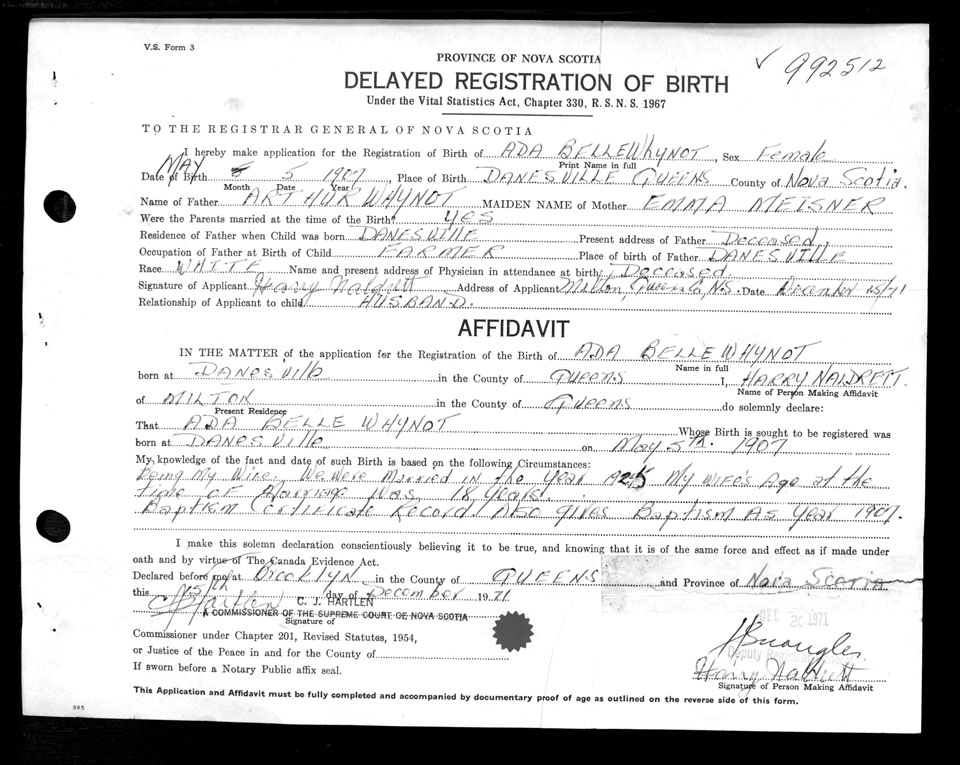 V.S. Form 3
PROVINCE OF NOVA SCOTIA
✓ 992512
DELAYED REGISTRATION OF BIRTH
Under the Vital Statistics Act, Chapter 330, R.S.N.S. 1967
TO THE REGISTRAR GENERAL OF NOVA SCOTIA
I hereby make application for the Registration of Birth of ADA BELLE WHYNOT, Sex Female
Print Name in full
Date of Birth MAY 5 1907, Place of Birth DANESVILLE QUEENS County of Nova Scotia.
Month Date Year
Name of Father ARTHUR WHYNOT MAIDEN NAME of Mother EMMA MEISNER
Were the Parents married at the time of the Birth? yes
Residence of Father when Child was born DANESVILLE Present address of Father Deceased,
Occupation of Father at Birth of Child FARMER Place of birth of Father DANESVILLE
Race WHITE Name and present address of Physician in attendance at birth, Deceased.
Signature of Applicant Harry Naldrett Address of Applicant Milton, Queens Co, N.S. Date December 15/71
Relationship of Applicant to child HUSBAND.
AFFIDAVIT
IN THE MATTER of the application for the Registration of the Birth of ADA BELLE WHYNOT
Name in full
born at DANESVille in the County of QUEENS I, HARRY NALDRETT.
Name of Person Making Affidavit
of MILTON in the County of QUEENS do solemnly declare:
Present Residence
That ADA BELLE WHYNOT Whose Birth is sought to be registered was
born at DANESVille on May 5th. 1907
My knowledge of the fact and date of such Birth is based on the following Circumstances:
Being My Wife. We Were Married in the Year 1925 My Wife's Age at the
time of Marriage Was 18 years.
Baptism Certificate Record Also gives Baptism As Year 1907.
I make this solemn declaration conscientiously believing it to be true, and knowing that it is of the same force and effect as if made under
oath and by virtue of The Canada Evidence Act.
Declared before me at Brooklyn in the County of QUEENS and Province of Nova Scotia
this 15th day of December 1971
CJ Hartlen C. J. HARTLEN
DEC 20 1971
A COMMISSIONER OF THE SUPREME COURT OF NOVA SCOTIA
Signature of
Commissioner under Chapter 201, Revised Statutes, 1954,
or Justice of the Peace in and for the County of
Deputy Registrar
If sworn before a Notary Public affix seal.
Harry Naldrett
Signature of Person Making Affidavit
This Application and Affidavit must be fully completed and accompanied by documentary proof of age as outlined on the reverse side of this form.
385